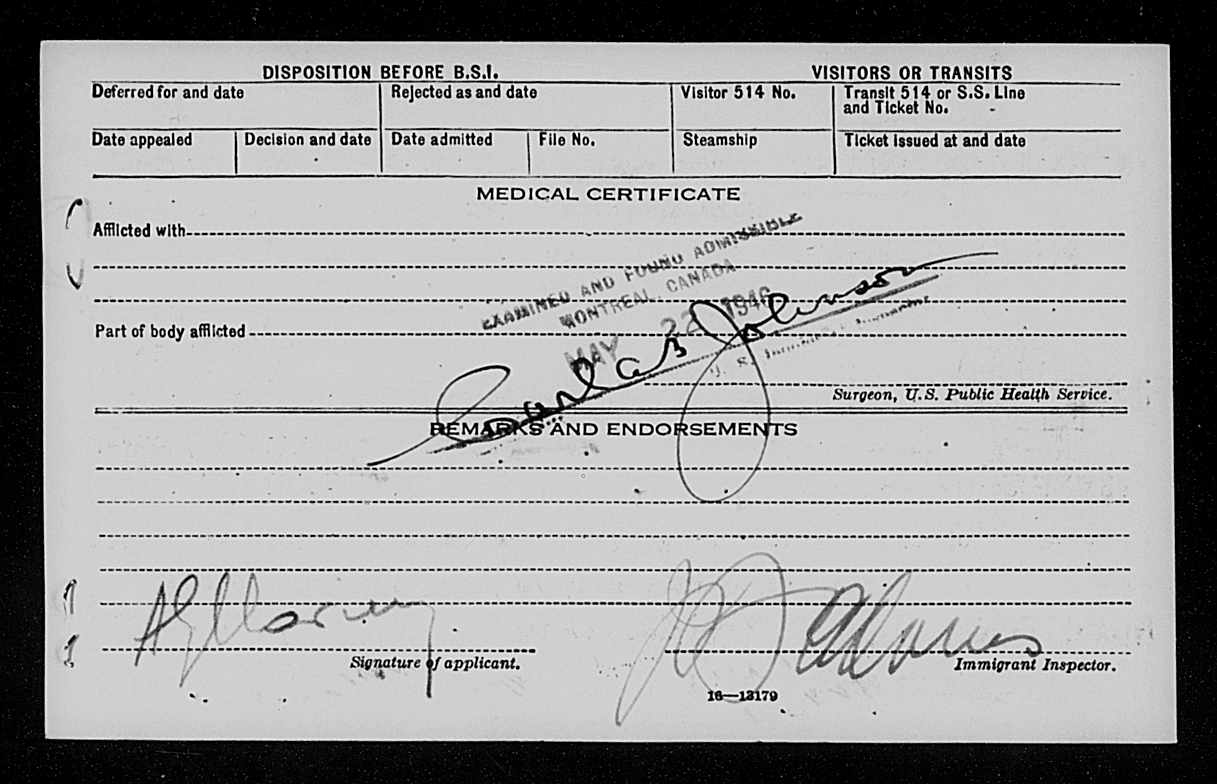 DISPOSITION BEFORE B.S.I. VISITORS OR TRANSITS
Deferred for and date Rejected as and date Visitor 514 No. Transit 514 or S.S. Line
and Ticket No.
Date appealed Decision and date Date admitted File No. Steamship Ticket issued at and date
MEDICAL CERTIFICATE
Afflicted with
EXAMINED AND FOUND ADMISSIBLE
MONTREAL CANADA
MAY 22 1946
Part of body afflicted
Johnson
U. S.
Surgeon, U.S. Public Health Service.
REMARKS AND ENDORSEMENTS
Signature of applicant. Immigrant Inspector.
16—13179